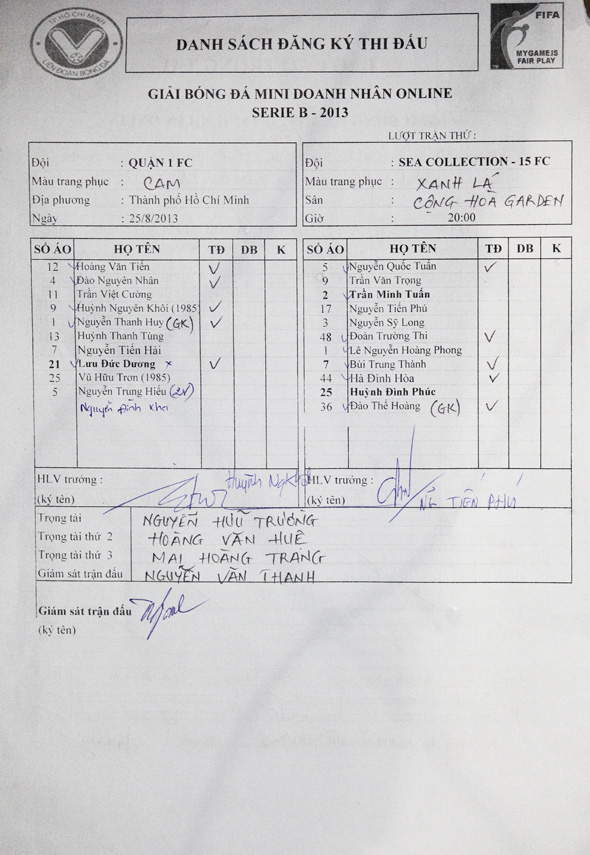 TP HỒ CHÍ MINH
LIÊN ĐOÀN BÓNG ĐÁ
DANH SÁCH ĐĂNG KÝ THI ĐẤU
FIFA
MY GAME IS
FAIR PLAY
GIẢI BÓNG ĐÁ MINI DOANH NHÂN ONLINE
SERIE B - 2013
LƯỢT TRẬN THỨ :
Đội : QUẬN 1 FC
Màu trang phục : CAM
Địa phương : Thành phố Hồ Chí Minh
Ngày : 25/8/2013
Đội : SEA COLLECTION - 15 FC
Màu trang phục : XANH LÁ
Sân : CỘNG HOÀ GARDEN
Giờ : 20:00
SỐ ÁO HỌ TÊN TĐ DB K
12 Hoàng Văn Tiến ✓
4 Đào Nguyên Nhân ✓
11 Trần Việt Cường
9 Huỳnh Nguyên Khôi (1985) ✓
1 Nguyễn Thanh Huy (GK) ✓
13 Huỳnh Thanh Tùng
7 Nguyễn Tiến Hải
21 Lưu Đức Dương x ✓
25 Vũ Hữu Trơn (1985)
5 Nguyễn Trung Hiếu
Nguyễn Đình Khơi
SỐ ÁO HỌ TÊN TĐ DB K
5 Nguyễn Quốc Tuấn ✓
9 Trần Văn Trọng
2 Trần Minh Tuấn
17 Nguyễn Tiến Phú
3 Nguyễn Sỹ Long
48 Đoàn Trường Thi ✓
1 Lê Nguyễn Hoàng Phong
7 Bùi Trung Thành ✓
44 Hà Đình Hòa ✓
25 Huỳnh Đình Phúc
36 Đào Thế Hoàng (GK) ✓
HLV trưởng : Huỳnh
(ký tên)
HLV trưởng :
(ký tên) NG TIẾN PHÚ
Trọng tài NGUYỄN HỮU TRƯỜNG
Trọng tài thứ 2 HOÀNG VĂN HUÊ
Trọng tài thứ 3 MAI HOÀNG TRANG
Giám sát trận đấu NGUYỄN VĂN THANH
Giám sát trận đấu
(ký tên)